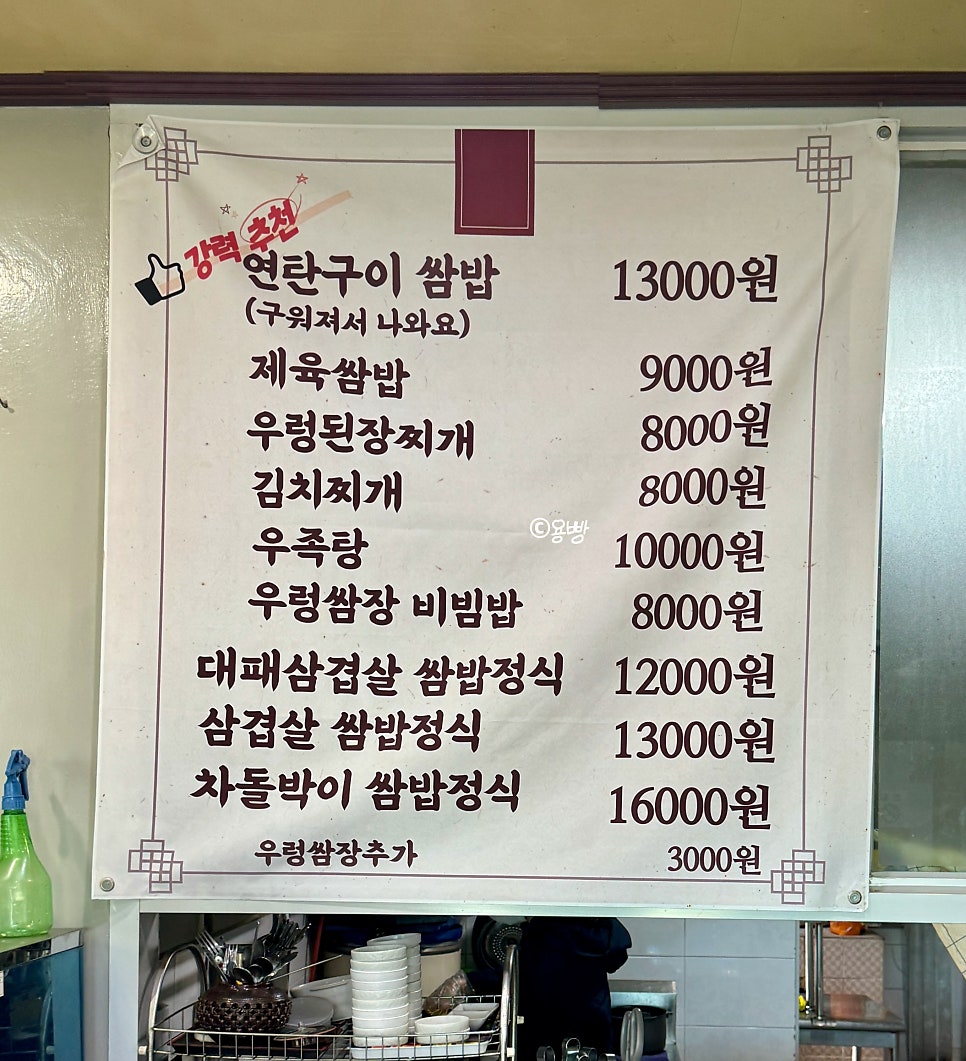 강력 추천
연탄구이 쌈밥 13000원
(구워져서 나와요)
제육쌈밥 9000원
우렁된장찌개 8000원
김치찌개 8000원
©용빵
우족탕 10000원
우렁쌈장 비빔밥 8000원
대패삼겹살 쌈밥정식 12000원
삼겹살 쌈밥정식 13000원
차돌박이 쌈밥정식 16000원
우렁쌈장추가 3000원